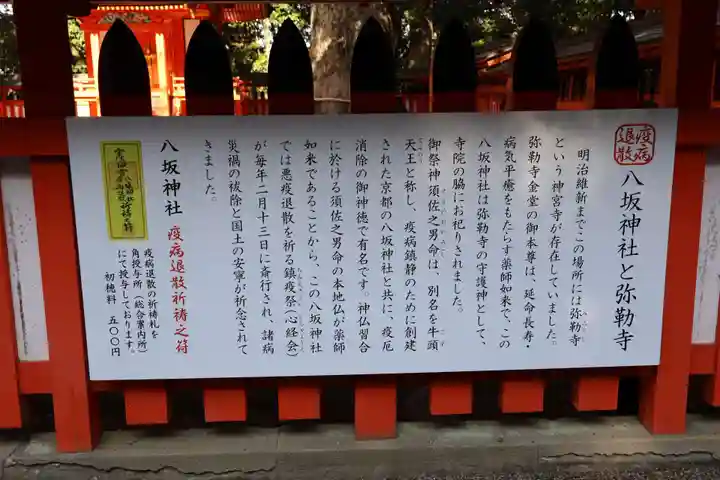 疫病
退散
八坂神社と弥勒寺
明治維新までこの場所には弥勒寺
という神宮寺が存在していました。
弥勒寺金堂の御本尊は、延命長寿・
病気平癒をもたらす薬師如来で、この
八坂神社は弥勒寺の守護神として、
寺院の脇にお祀りされました。
御祭神須佐之男命は、別名を牛頭
天王と称し、疫病鎮静のために創建
された京都の八坂神社と共に、疫厄
消除の御神徳で有名です。神仏習合
に於ける須佐之男命の本地仏が薬師
如来であることから、、この八坂神社
では悪疫退散を祈る鎮疫祭(心経会)
が毎年二月十三日に斎行され、諸病
災禍の祓除と国土の安寧が祈念されて
きました。
八坂神社 疫病退散祈祷之符
疫病退散の祈祷札を
角授与所(総合案内所)
にて授与しております。
初穂料 五〇〇円